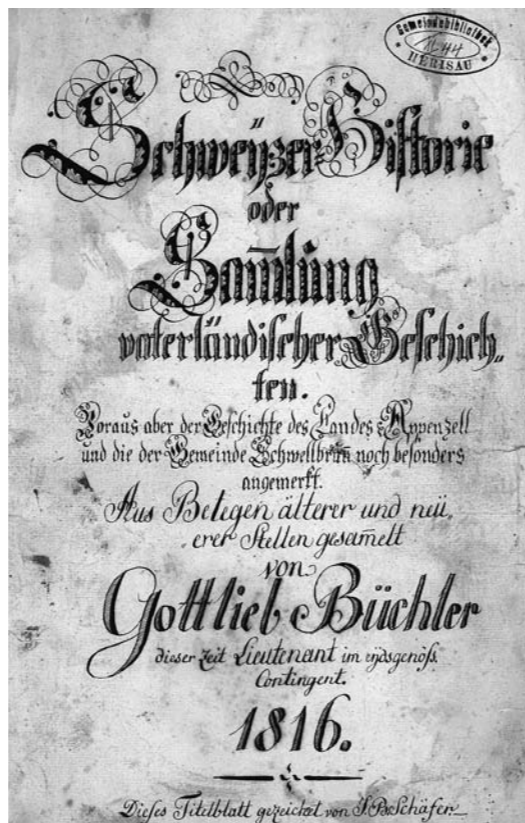 Gemeindebibliothek
HERISAU
Schweÿzer-Historie
oder
Sam̅lung
vaterländischer Geschich„
ten.
Voraus aber der Geschichte des Landes Appenzell
und die der Gemeinde Schwellbrun̅ noch besonders
angemerkt.
Aus Belegen älterer und neü„
erer Stellen gesam̅elt
von
Gottlieb Büchler
dieser Zeit Lieutenant im eÿdsgenöss.
Contingent.
1816.
Dieses Titelblatt gezeichet von J. Schäfer.